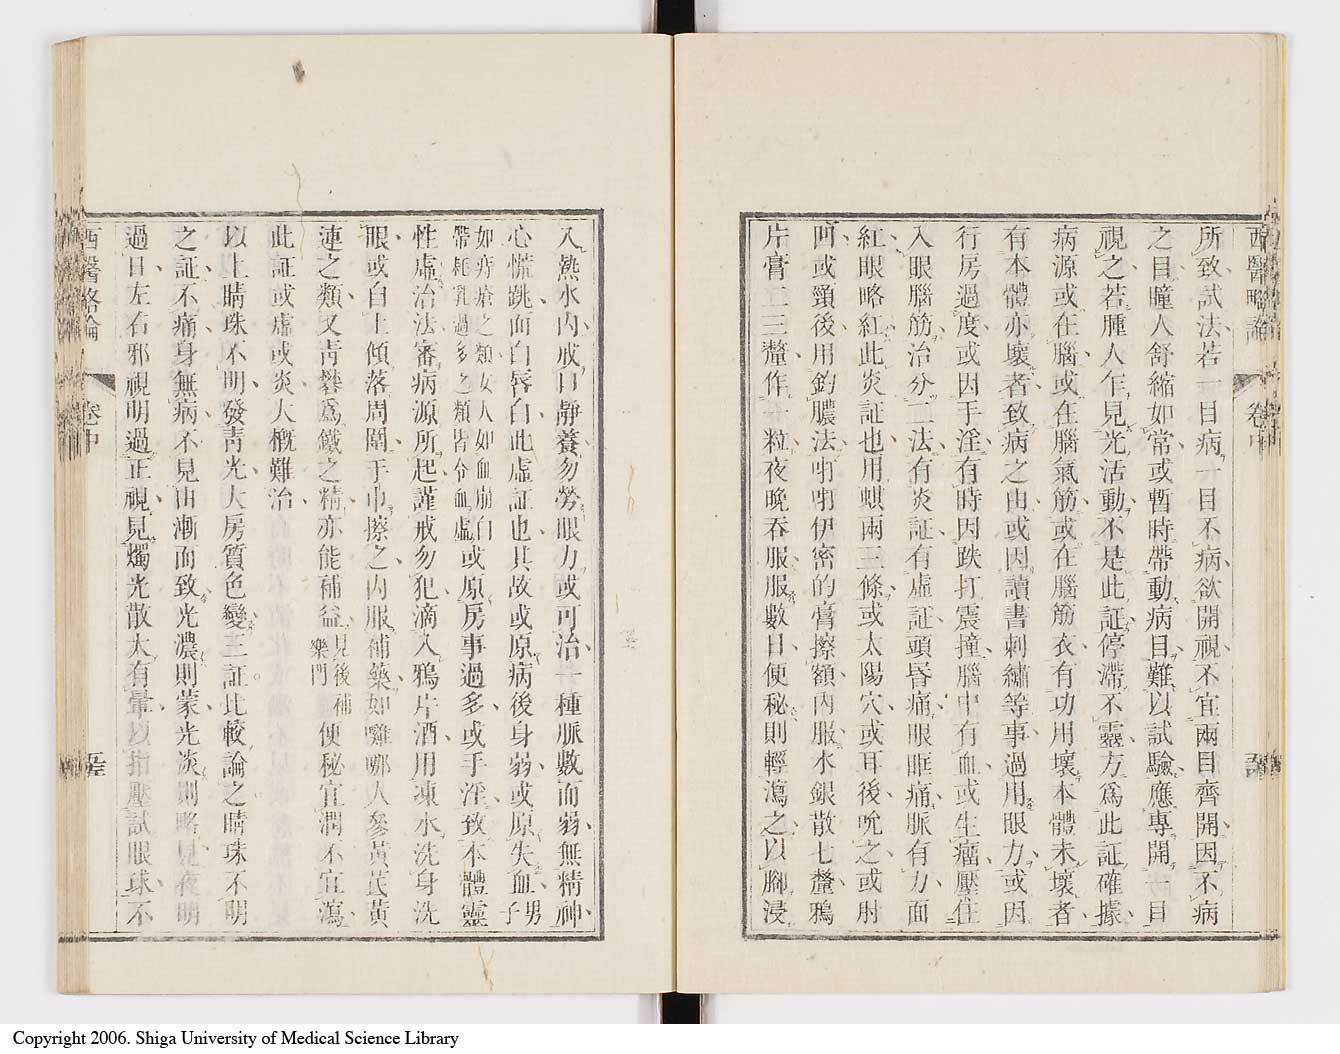 西醫略論 卷中
所致試法若一目病一目不病欲開視不宜兩目齊開因不病
之目瞳人舒縮如常或暫時帶動病目難以試驗應專開一目
視之若腫人乍見光活動不是此証停滯不靈方爲此証確據
病源或在腦或在腦氣筋或在腦筋衣有功用壞本體未壞者
有本體亦壞者致病之由或因讀書刺繡等事過用眼力或因
行房過度或因手淫有時因跌打震撞腦中有血或生瘤壓住
入眼腦筋治分二法有炎証有虛証頭昏痛眼眶痛脈有力面
紅眼略紅此炎証也用蜞兩三條或太陽穴或耳後吮之或肘
或頸後用釣膿法吲吲伊密的膏擦額內服水銀散七釐鴉
片膏二三釐作一粒夜晚吞服服數日便秘則輕瀉之以腳浸
入熱水內戒口靜養勿勞眼力或可治一種脈數而弱無精神
心慌跳面白唇白此虛証也其故或原病後身弱或原失血男子
如痔瘡之類女人如血崩白
帶耗乳過多之類皆令血虛或原房事過多或手淫致本體靈
性虛治法審病源所起謹戒勿犯滴入鴉片酒用凍水洗身洗
眼或自上傾落周圍手巾擦之內服補藥如囇哪人參黃芪黃
連之類又靑礬爲鐵之精亦能補益見後補
藥門便秘宜潤不宜瀉
此証或虛或炎大概難治
以上睛珠不明發靑光大房質色變三証比較論之睛珠不明
之証不痛身無病不見由漸而致光濃則蒙光淡則略見夜明
過日左右邪視明過正視見燭光散大有暈以指壓試眼球不
西醫略論 卷中